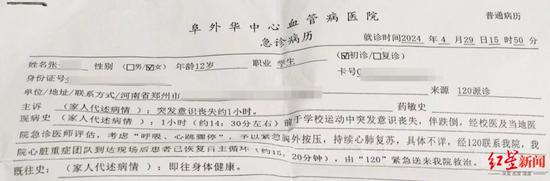 阜外华中心血管病医院
普通病历
急诊病历
就诊时间2024 年 4 月 29 日15 时 50 分
姓名张 性别 (□男/☑女) 年龄12岁 职业 学生 ☑初诊/□复诊)
身份证号 卡号
单位/地址/联系方式/河南省郑州市 来源 120派诊
主诉 (家人代述病情):突发意识丧失约1小时。 药敏史
现病史 (家人代述病情):1小时(约14:30分左右)前于学校运动中突发意识丧失,伴跌倒,经校医及当地医
院急诊医师评估,考虑"呼吸、心跳骤停",予以紧急胸外按压,持续心肺复苏,具体不详,经120联系我院,我
院心脏重症团队到达现场后患者已恢复自主循环(约15:20分钟),由"120"紧急送来我院救治。
既往史:(家人代述病情):即往身体健康。
红星新闻